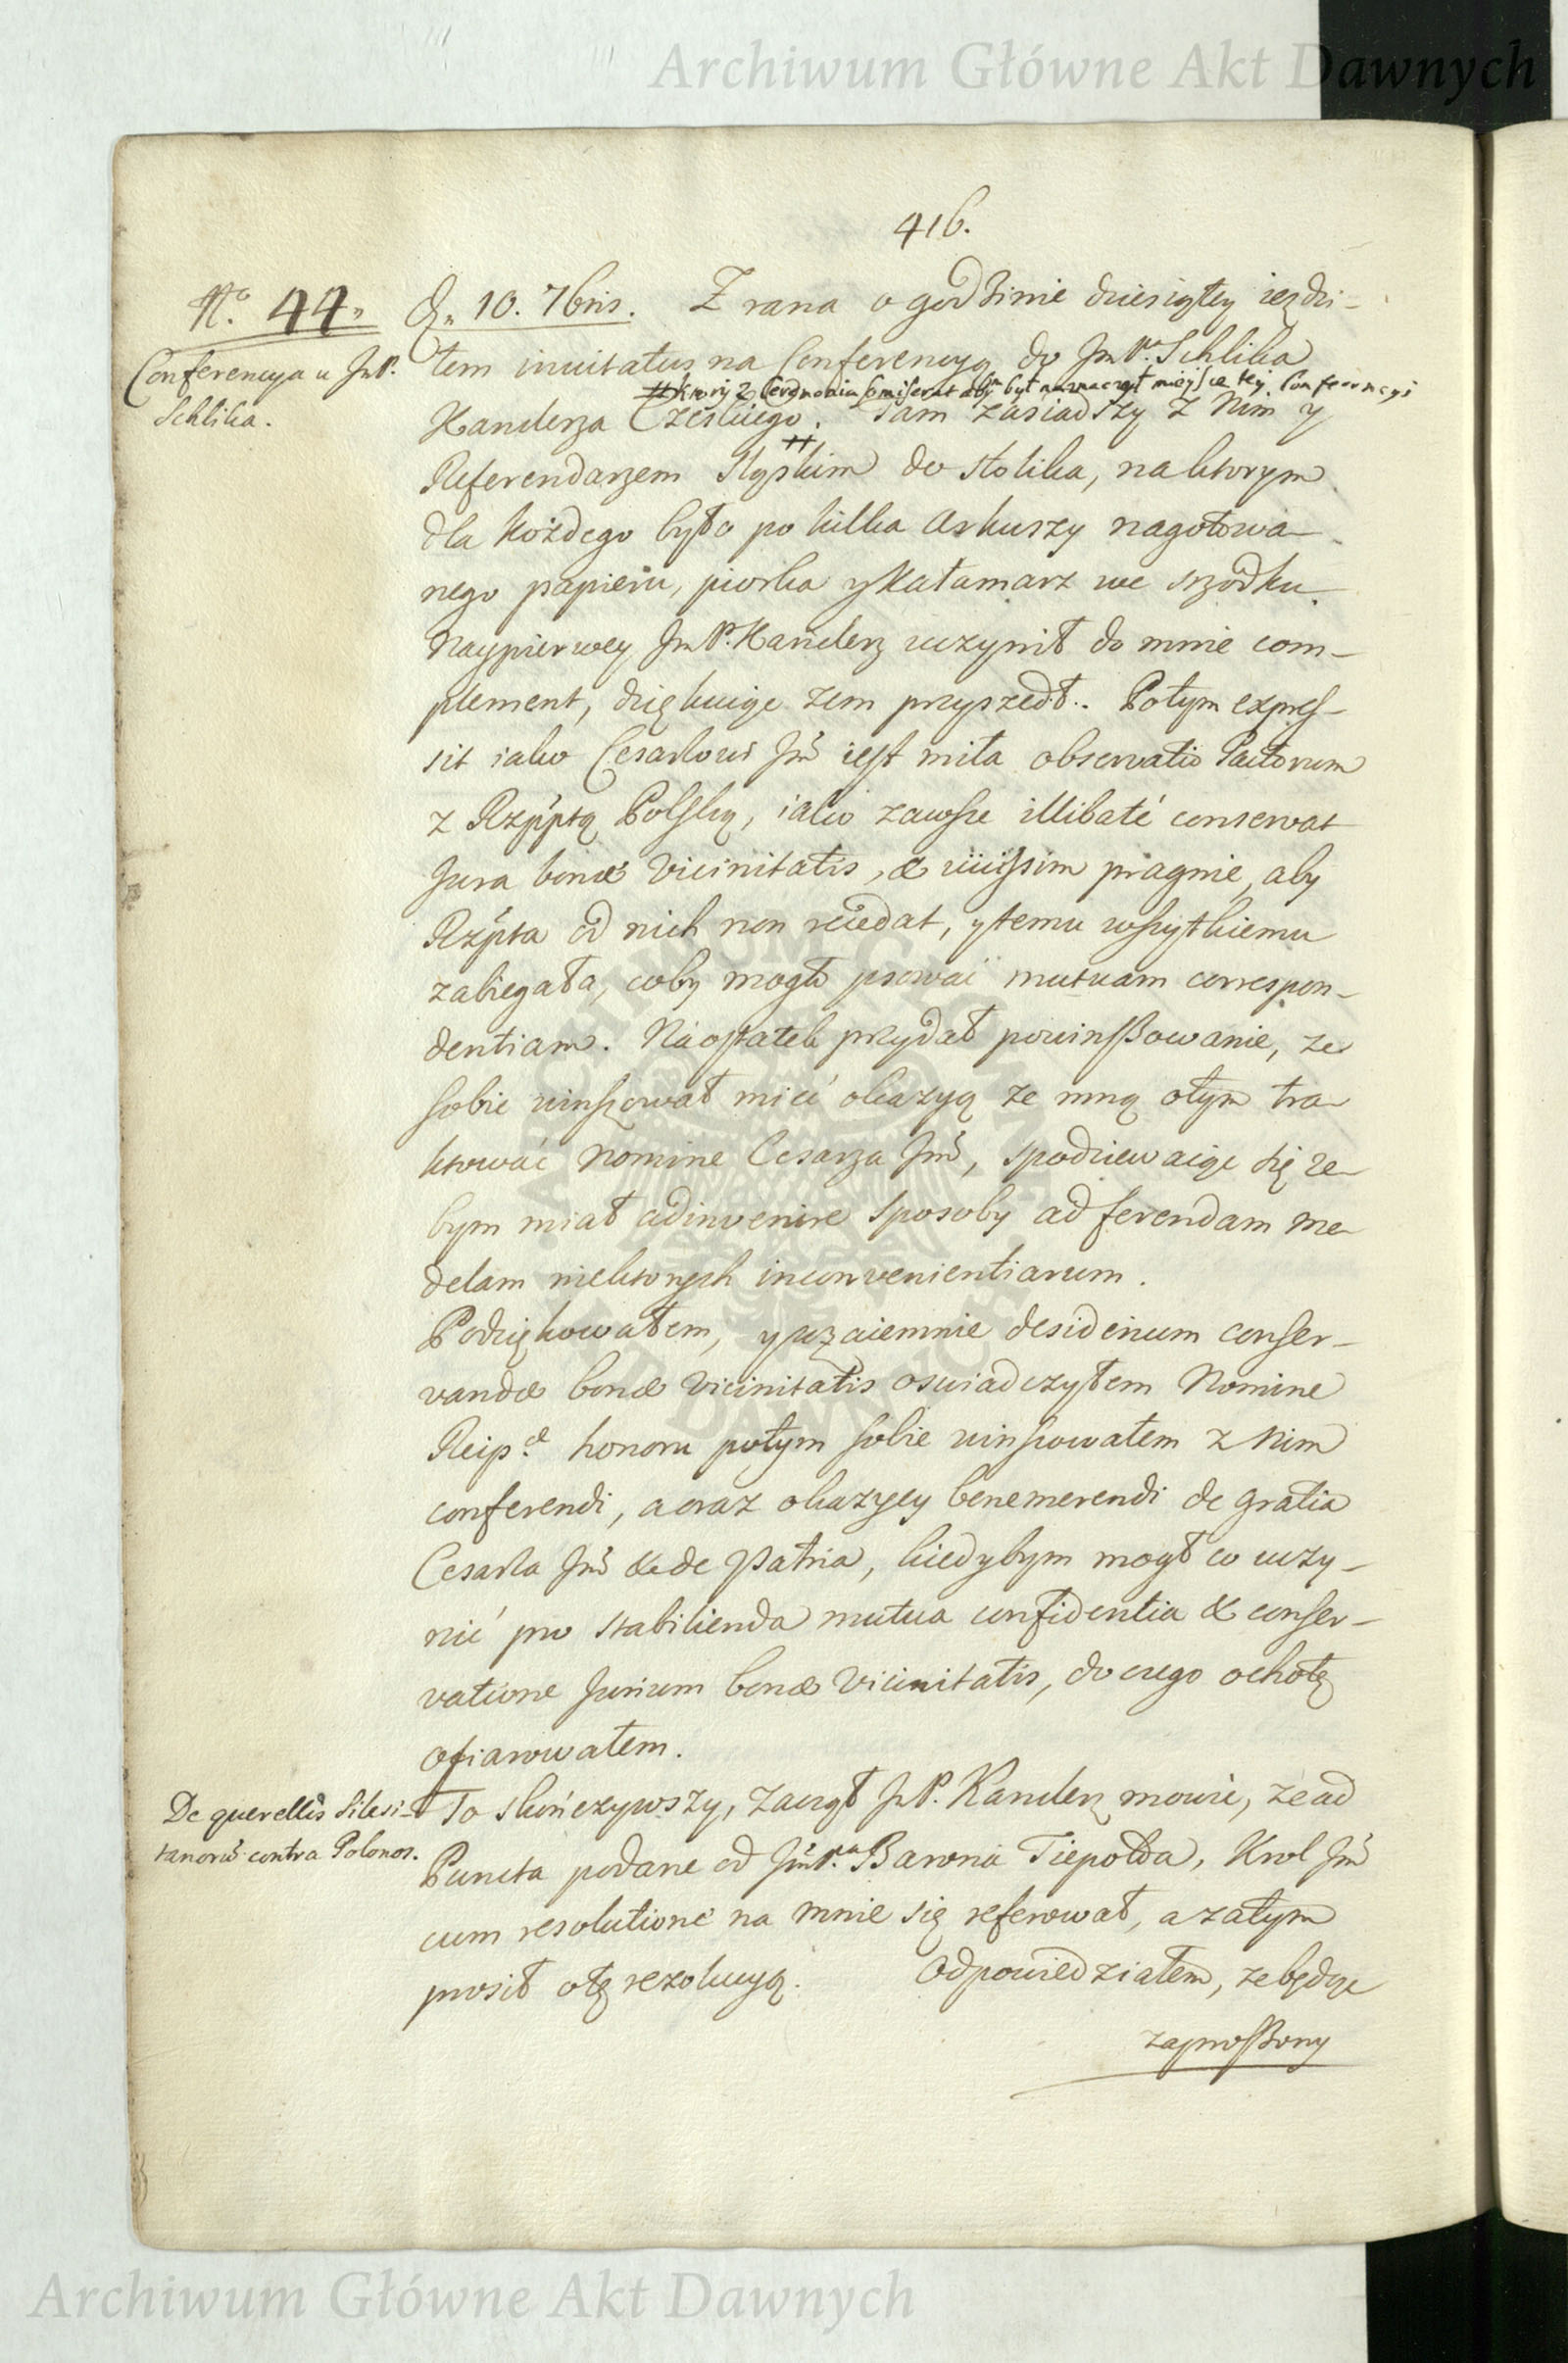 Archiwum Główne Akt Dawnych
416.
No. 44.
Conferencya u JmP.
Schlika.
D. 10. 7bris. Z rana o godzinie dziesiątey ieździ-
łem invitatus na Conferencyą do Jm Pa. Schlika
# ktory z Ceremonią aby był naznaczył mieysce tey Conferencyi
Kanclerza Czeskiego. Tam zasiadszy z Nim y
#
Referendarzem Sląskim do stolika, na ktorym
dla kożdego było po kilka arkuszy nagotowa-
nego papieru, piorka y Kałamarz we srzodku.
Naypierwey Jm P. Kanclerz uczynił do mnie com-
plement, dziękuiąc żem przyszedł. Potym expres-
sit iako Cesarzowi Jm̃ iest miła observatio Pactorum
z Rzpptą Polską, iako zawsze illibatè conservat
Jura bonæ Vicinitatis, & vicissim pragnie, aby
Rzpta od nich non recedat, y temu wszytkiemu
zabiegała, coby mogło psować mutuam correspon-
dentiam. Naostatek przydał powinszowanie, ze
sobie winszował mieć okazyą ze mną otym tra-
ktować Nomine Cesarza Jm̃, spodziewaiąc się ze-
bym miał adinvenire sposoby ad ferendam me-
delam niektorych inconvenientiarum.
Podziękowałem, y wzaiemnie desiderium conser-
vandæ bonæ Vicinitatis oswiadczyłem Nomine
Reip.æ honoru potym sobie winszowałem z Nim
conferendi, a oraz okazyey benemerendi de gratia
Cesarza Jm̃ & de Patria, kiedybym mogł co uczy-
nić pro stabilienda mutua confidentia & conser-
vatione Jurium bonæ Vicinitatis, do czego ochotę
ofiarowałem.
De querellis Silesi-
tanorũ contra Polonos.
To skończywszy, zaczął J P. Kanclerz mowić, ze ad
Puncta podane od JmP.na Barona Tiepolda, Krol Jm̃
cum resolutione na mnie się referował, a zatym
prosił otę rezolucyą. Odpowiedziałem, ze będąc
zaproszony
ARCHIWUM GŁÓWNE AKT DAWNYCH
Archiwum Główne Akt Dawnych